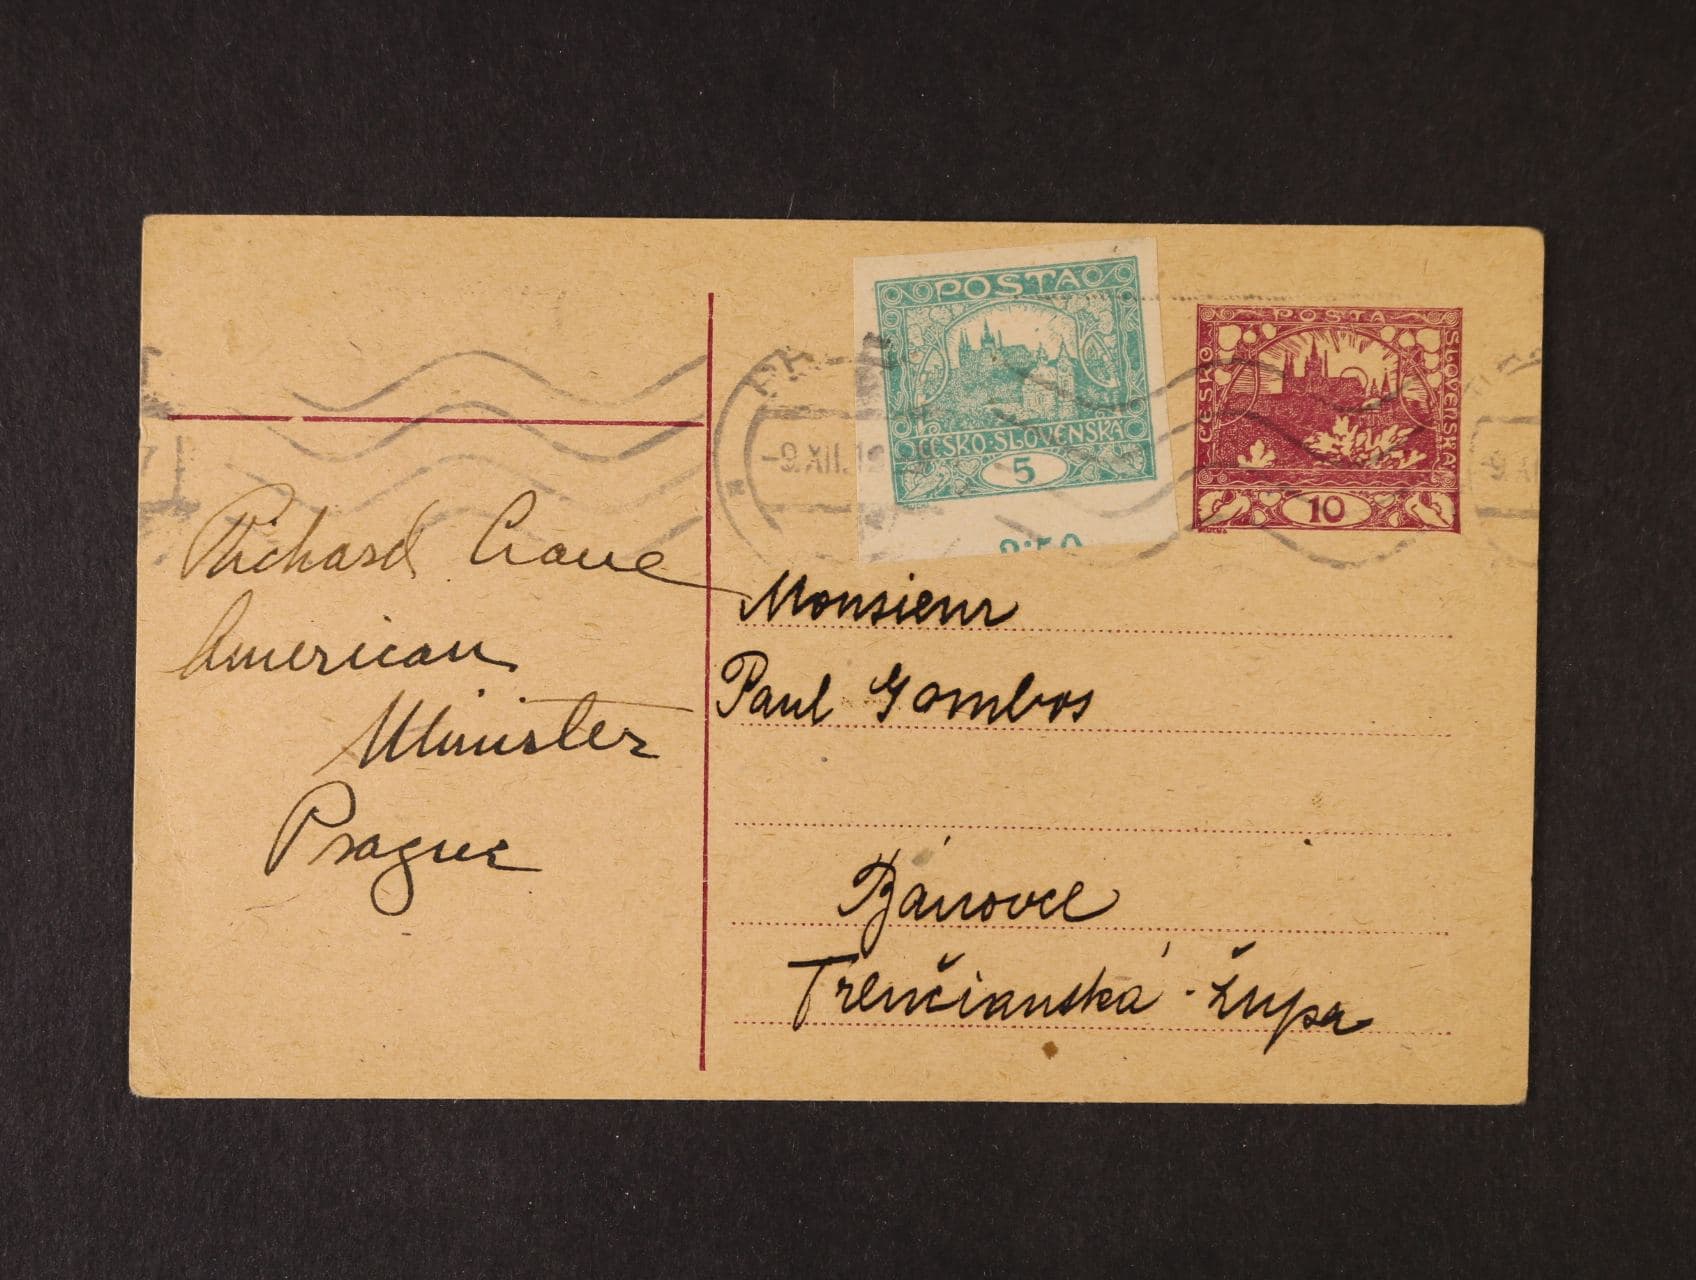 POSTA
ČESKO-SLOVENSKÁ
5
POSTA
ČESKO
SLOVENSKÁ
10
-9.XII.19
Richard Crane
American
Minister
Prague
Monsieur
Paul Gombos
Bánovce
Trenčianská-župa